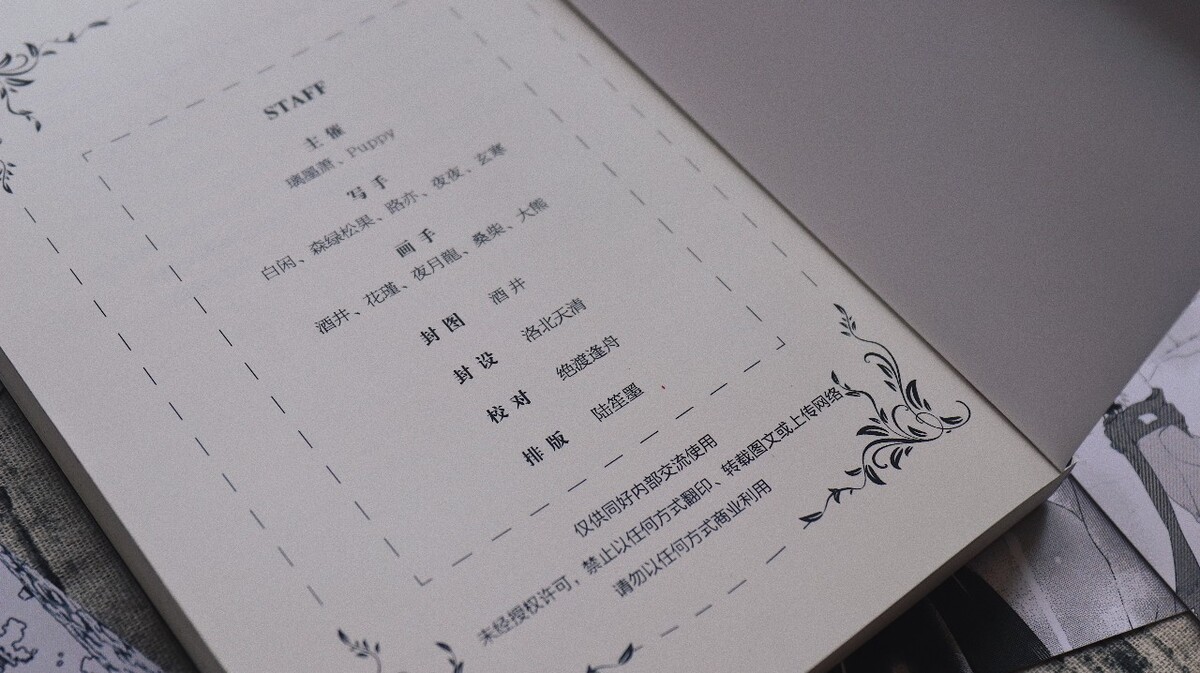 STAFF
主催
璃墨萧、Puppy
写手
白闲、森绿松果、路亦、夜夜、玄寒
画手
酒井、花瑾、夜月龍、桑柴、大熊
封图 酒井
封设 洛北天清
校对 绝渡逢舟
排版 陆笙墨
仅供同好内部交流使用
未经授权许可，禁止以任何方式翻印、转载图文或上传网络
请勿以任何方式商业利用